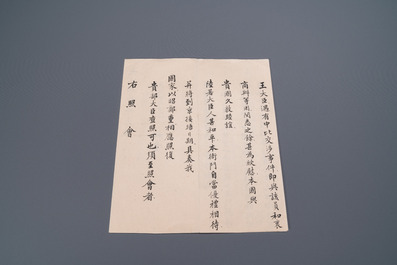 王大臣遇有中比交涉事件即與該員和衷
商辦等因閱悉之餘甚為欣慰本國與
貴國久敦睦誼
陸署大臣人甚和平本衙門自當優禮相待
并將到京接培日期具奏我
國家以昭鄭重相應照復
貴部大臣查照可也須至照會者
右照會